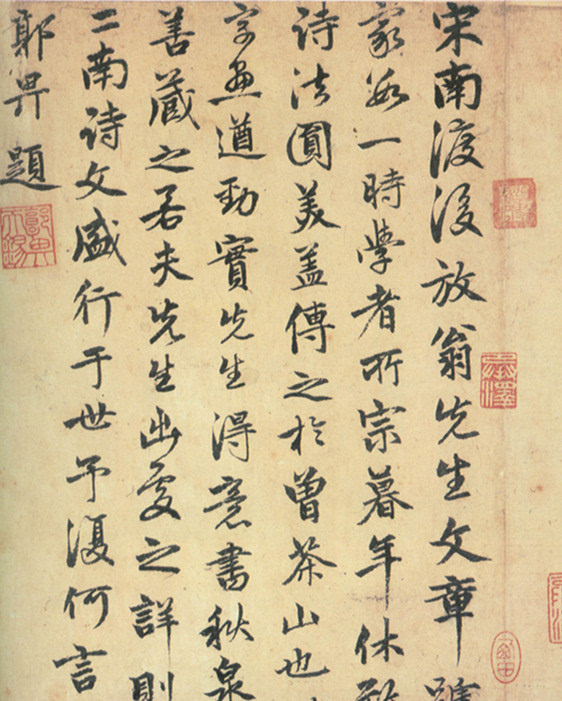 宋南渡後放翁先生文章號
家數一時學者所宗暮年休致
詩法圓美盖傳之於曾茶山也
字畫遒勁實先生得意書秋泉
善藏之若夫先生出處之詳則
二南詩文盛行于世予復何言
郭畀題
郭畀天錫